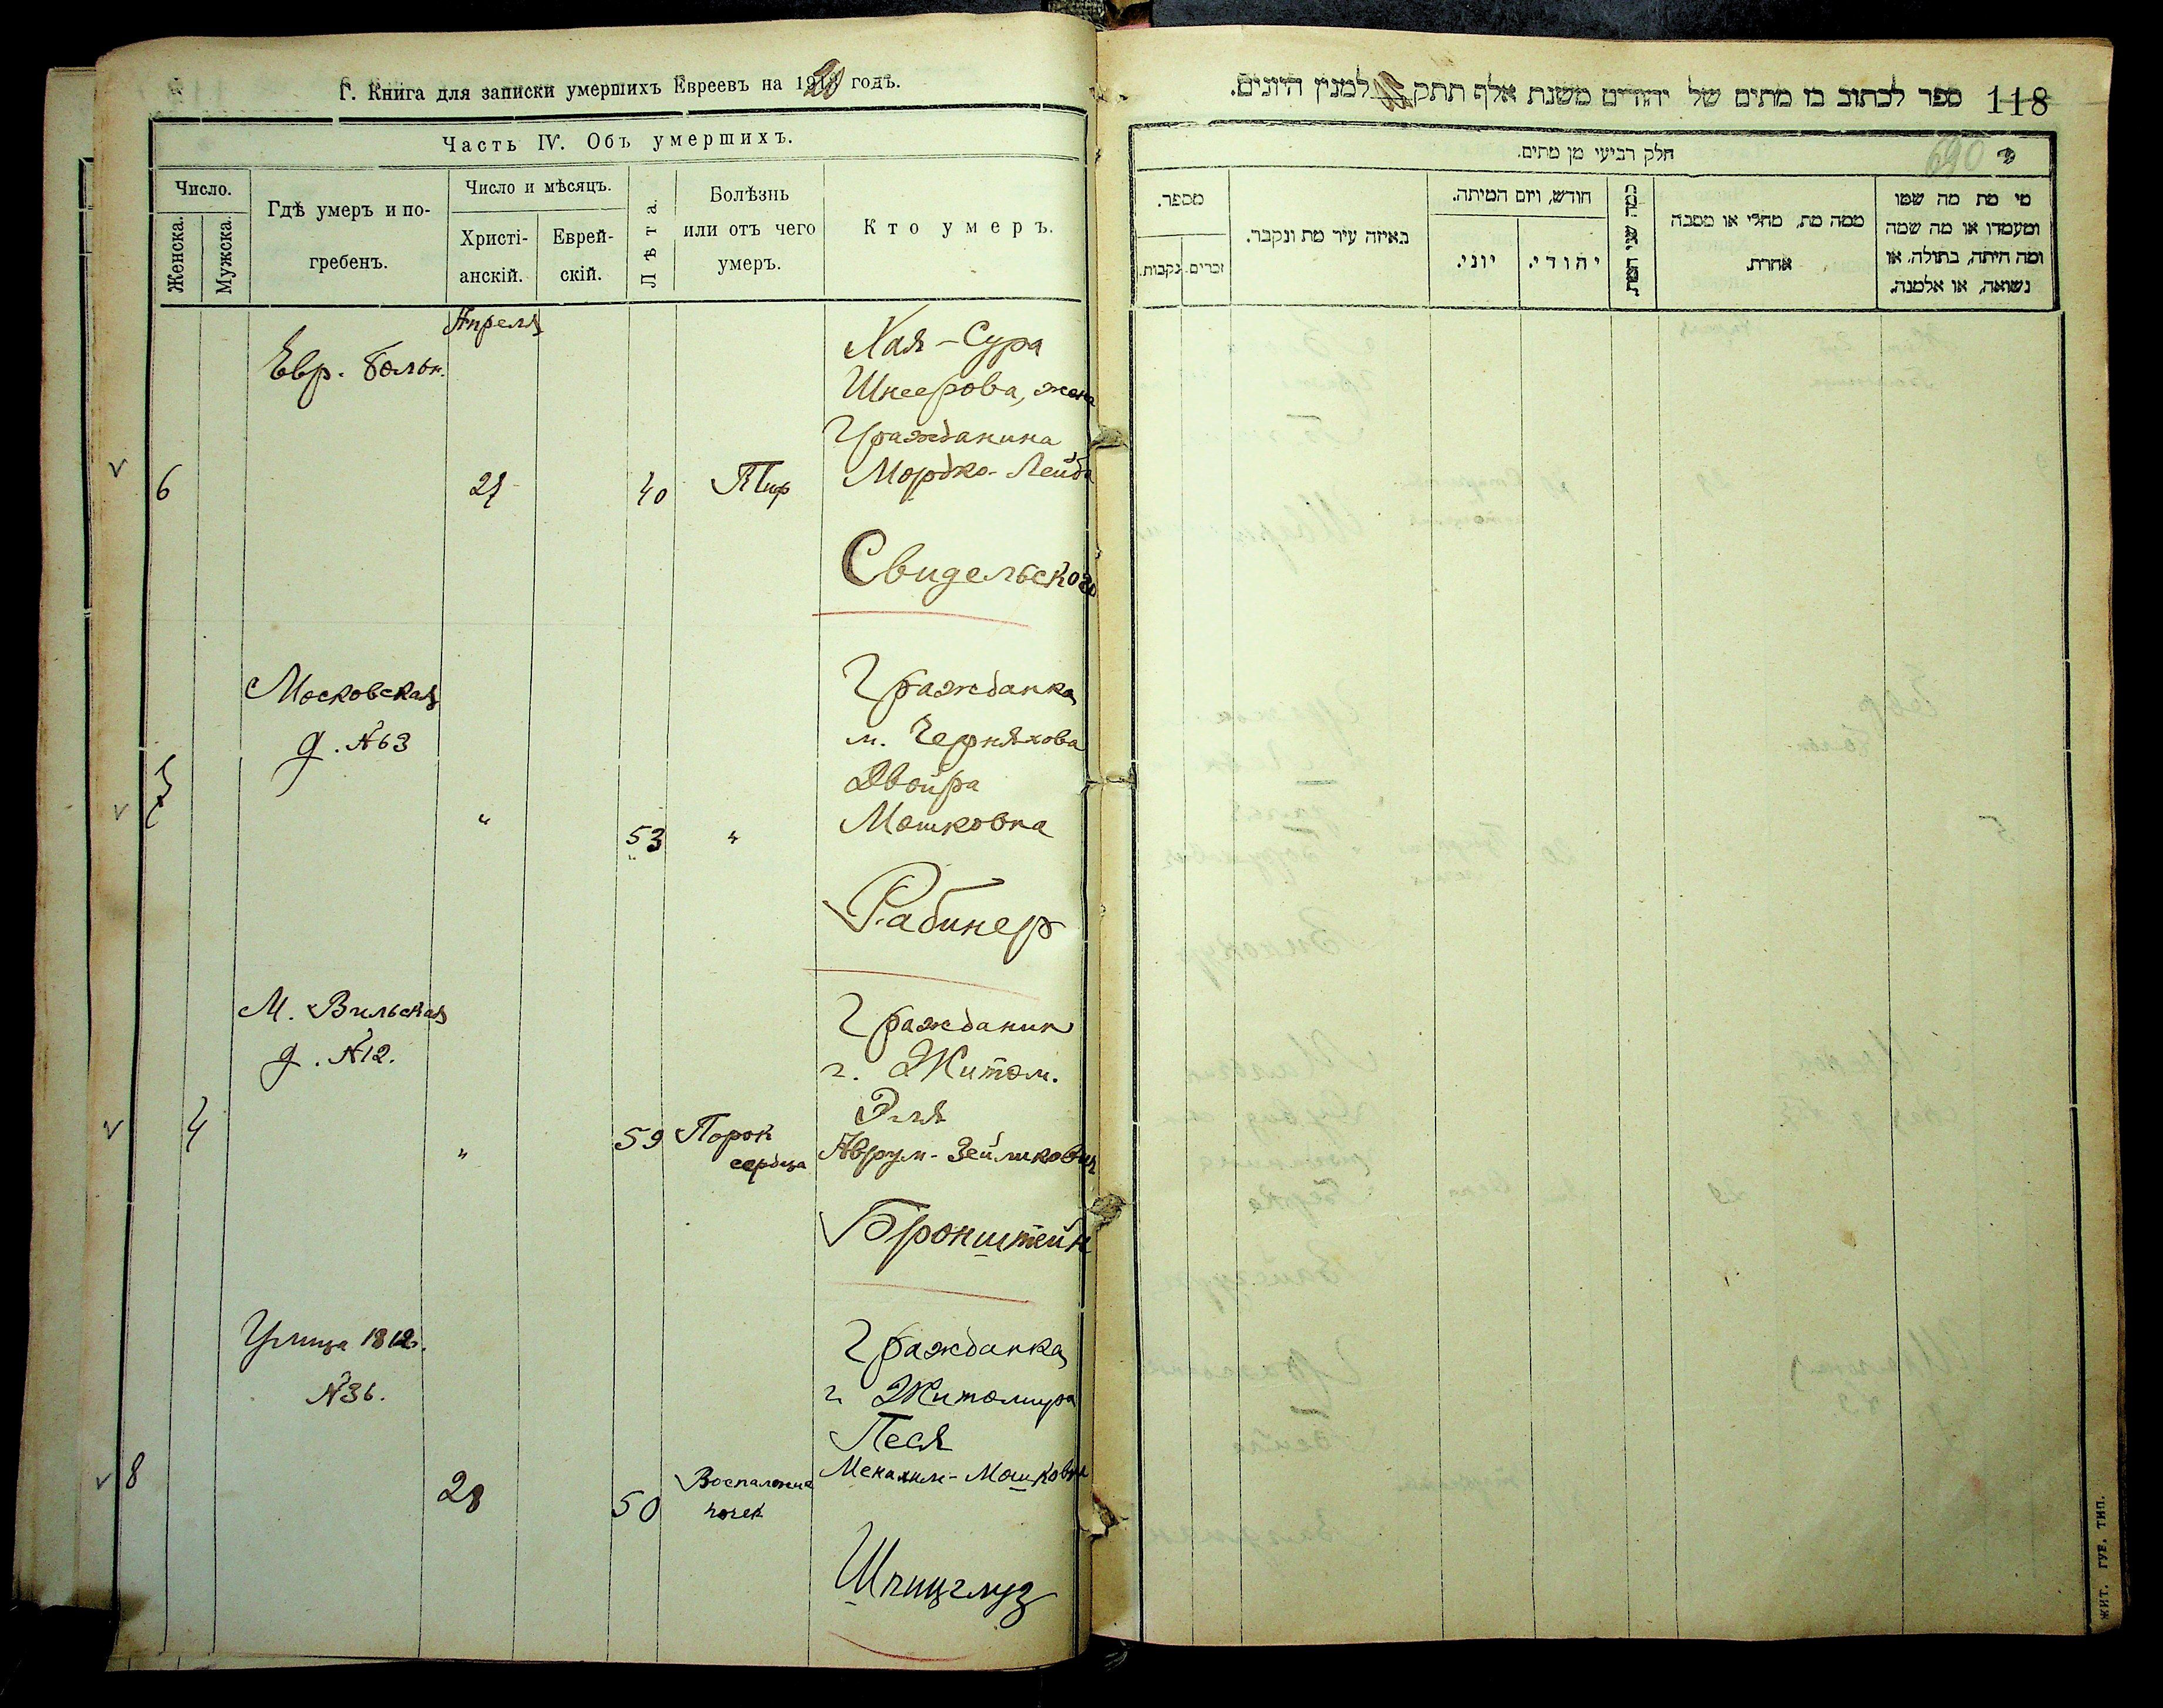 Г. Книга для записки умершихъ Евреевъ на 1920 годъ.
Часть IV. Объ умершихъ.
Число.
Женска.
Мужска.
Гдѣ умеръ и по-
гребенъ.
Число и мѣсяцъ.
Христі-
анскій.
Еврей-
скій.
Лѣта.
Болѣзнь
или отъ чего
умеръ.
Кто умеръ.
Апреля
Евр. больн.
6
27
40
Тиф
Хая-Сура
Шнеерова, жена
Гражданина
Мордко-Лейба
Свидельского
Московская
д. №63
7
"
53
"
Гражданка
м. Черняхова
Двойра
Мошковна
Рабинер
М. Вильская
д. №12.
4
"
59
Порок
сердца
Гражданин
г. Житом.
Эля
Аврум-Зейликович
Бронштейн
Улица 1812.
№36.
8
28
50
Воспаление
почек
Гражданка
г. Житомира
Песя
Менахим-Мошковна
Шпицглуз
118
ספר לכתוב בו מתים של יהודים משנת אלף תתק למנין היונים.
690
חלק רביעי מן מתים.
מספר.
נקבות.
זכרים.
באיזה עיר מת ונקבר.
חודש, ויום המיתה.
יוני.
יהודי.
כמה שני המת.
ממה מת, מחלי או מסבה
אחרת.
מי מת מה שמו
ומעמדו או מה שמה
ומה היתה, בתולה, או
נשואה, או אלמנה.
ЖИТ. ГУБ. ТИП.